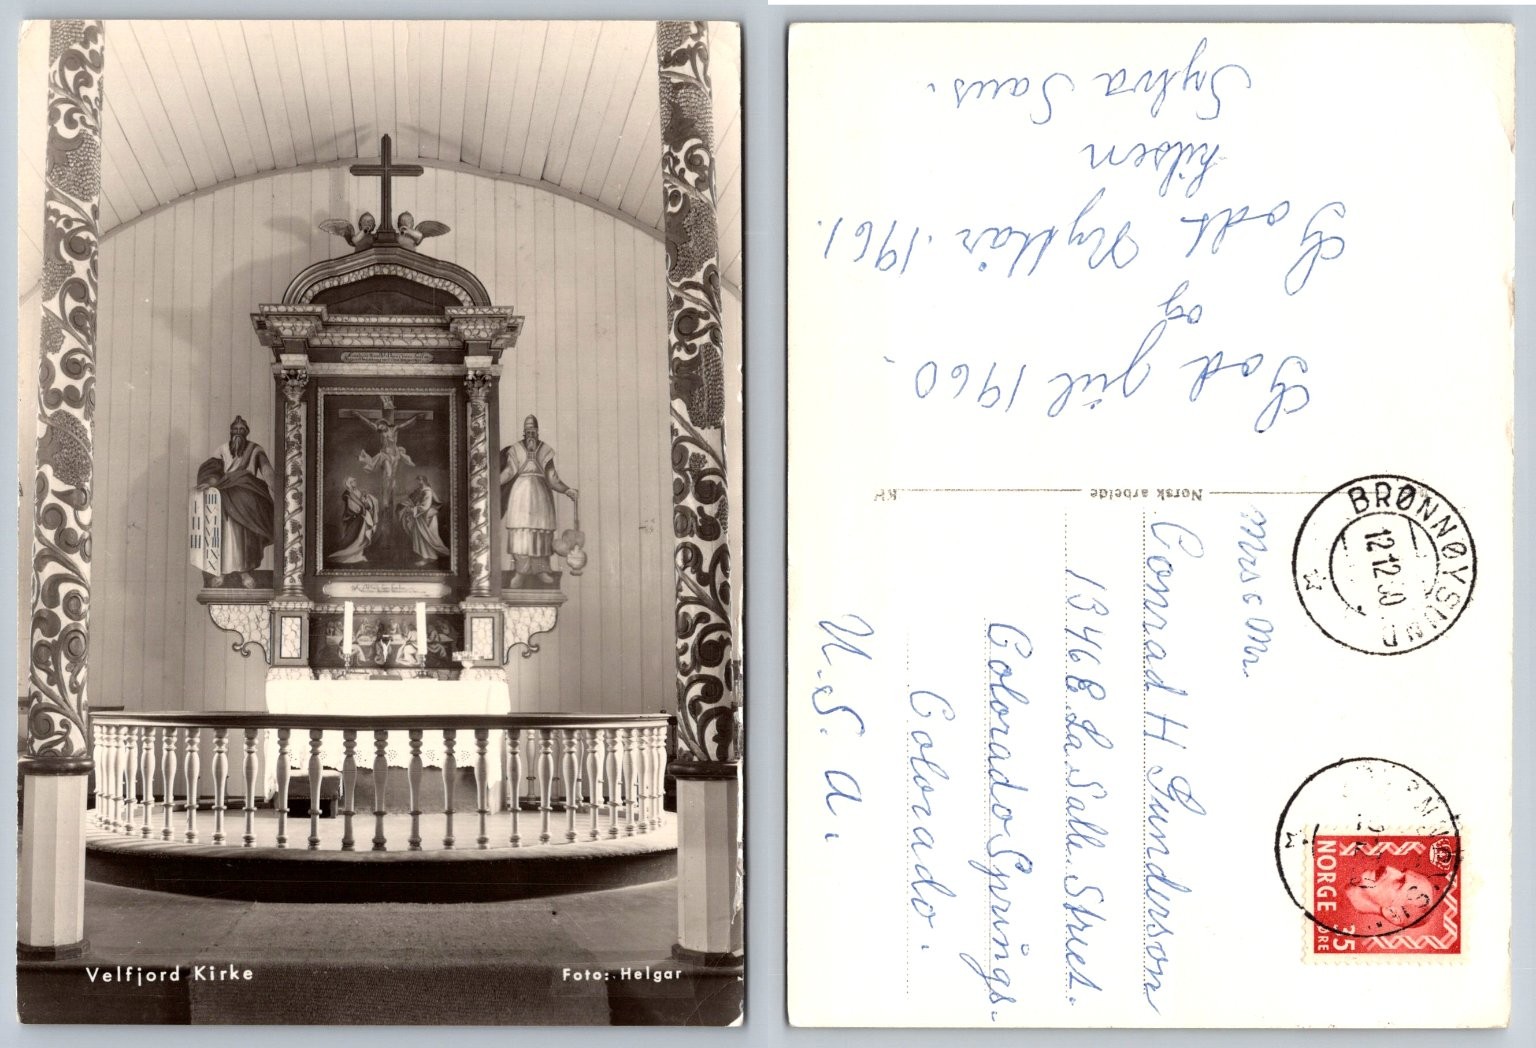 Velfjord Kirke
Foto: Helgar
God jül 1960.
og
Godt Nyttår 1961.
hilsen
Sylva Saus.
Norsk arbeide
BRØNNØYSUND
12 12 60
NORGE
35
ØRE
Mrs o Mr.
Conrad H Gunderson
1346 E La Salle Street.
Colorado Springs.
Colorado.
U. S. A.